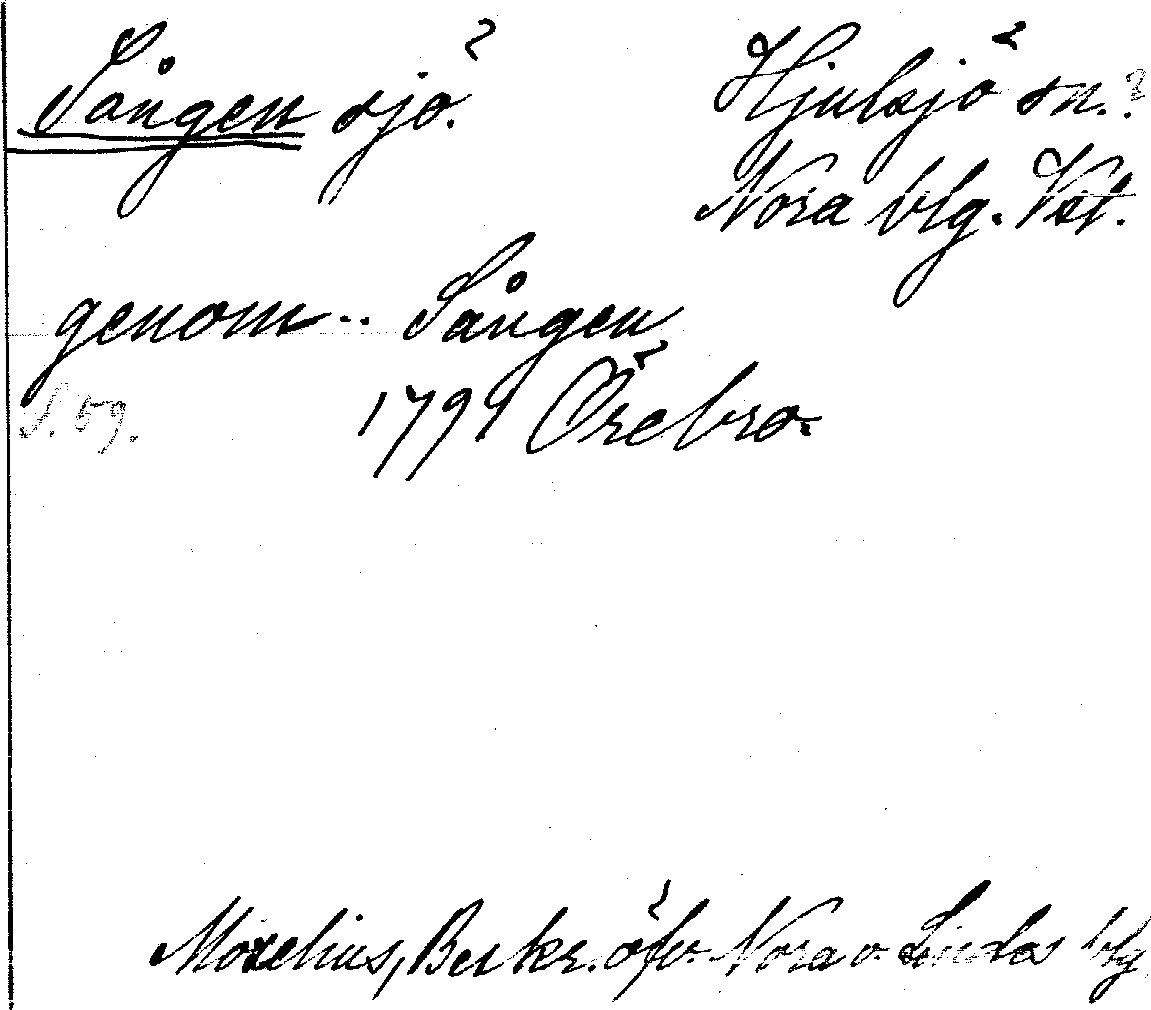 Sången sjö.
Hjulsjö sn.?
Nora blg. Vstl.
genom.. Sången
S. 59.
1791 Örebro.
Moxelius, Beskr. öfv. Nora o. Lindes blg